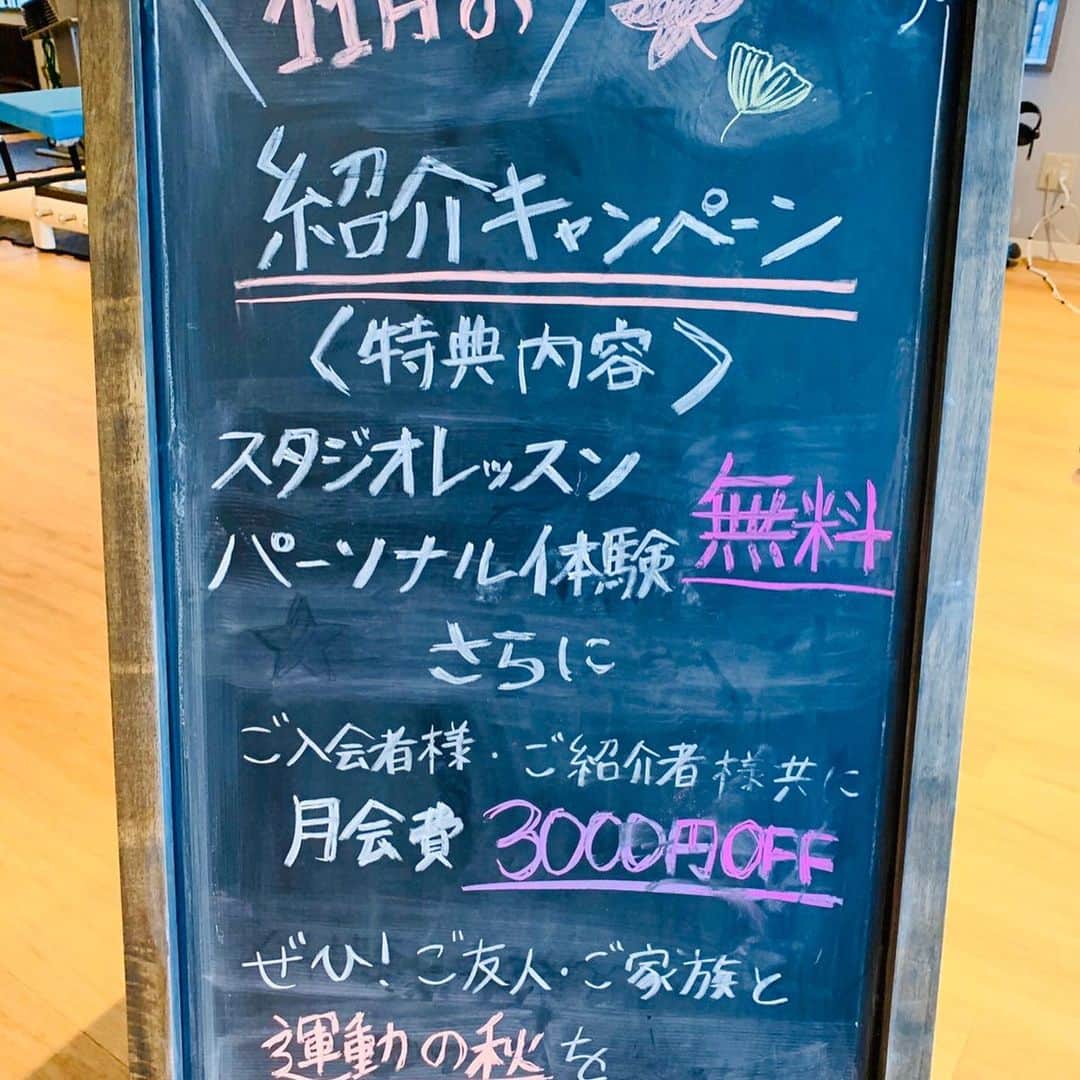 11月の
紹介キャンペーン
〈特典内容〉
スタジオレッスン
パーソナル体験 無料
さらに
ご入会者様・ご紹介者様共に
月会費 3000円OFF
ぜひ！ご友人・ご家族と
運動の秋を